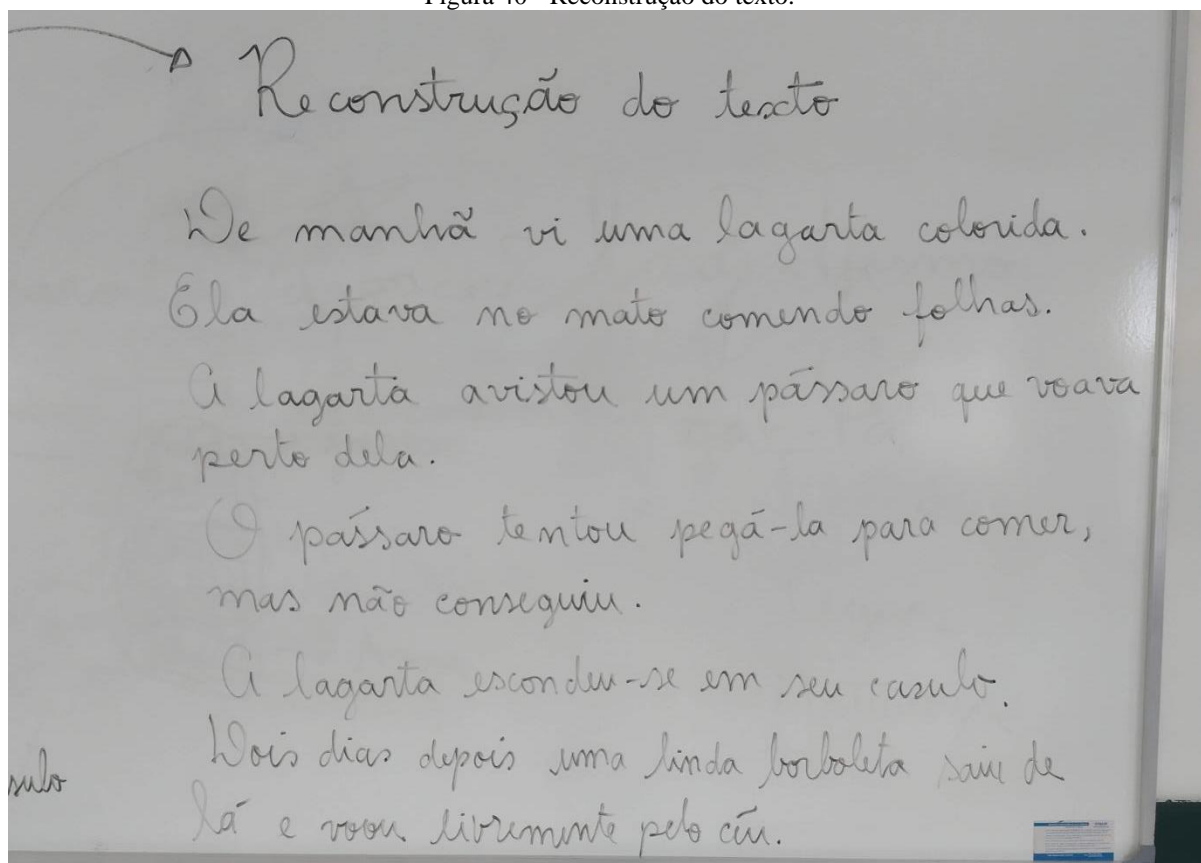 Figura 40 - Reconstrução do texto.
Reconstrução do texto
De manhã vi uma lagarta colorida.
Ela estava no mato comendo folhas.
A lagarta avistou um pássaro que voava
perto dela.
O pássaro tentou pegá-la para comer,
mas não conseguiu.
A lagarta escondeu-se em seu casulo.
Dois dias depois uma linda borboleta saiu de
lá e voou livremente pelo céu.
sulo